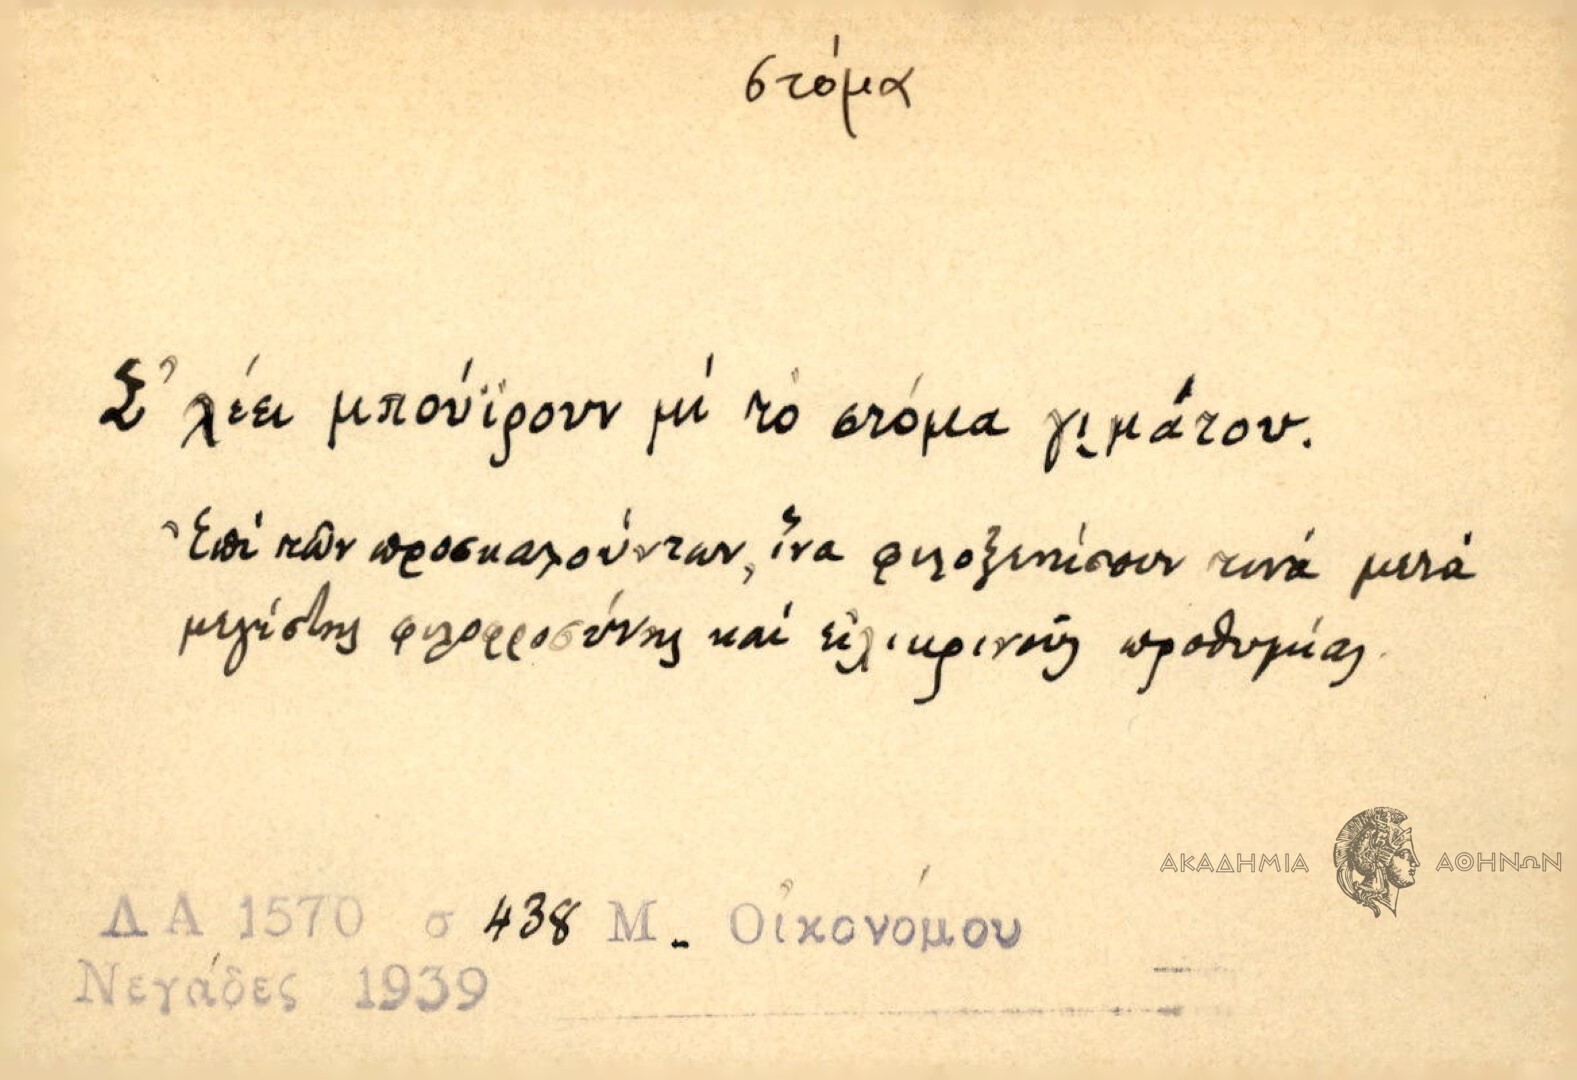 στόμα
Σ' λέει μπούϊρουν μὶ τὸ στόμα γιμάτου.
Ἐπὶ τῶν προσκαλούντων, ἵνα φιλοξενήσουν τινά μετά
μεγίστης φιλοφροσύνης καί εἰλικρινοῦς προθυμίας.
ΑΚΑΔΗΜΙΑ ΑΘΗΝΩΝ
ΔΑ 1570 σ 438 Μ. Οἰκονόμου
Νεγάδες 1939